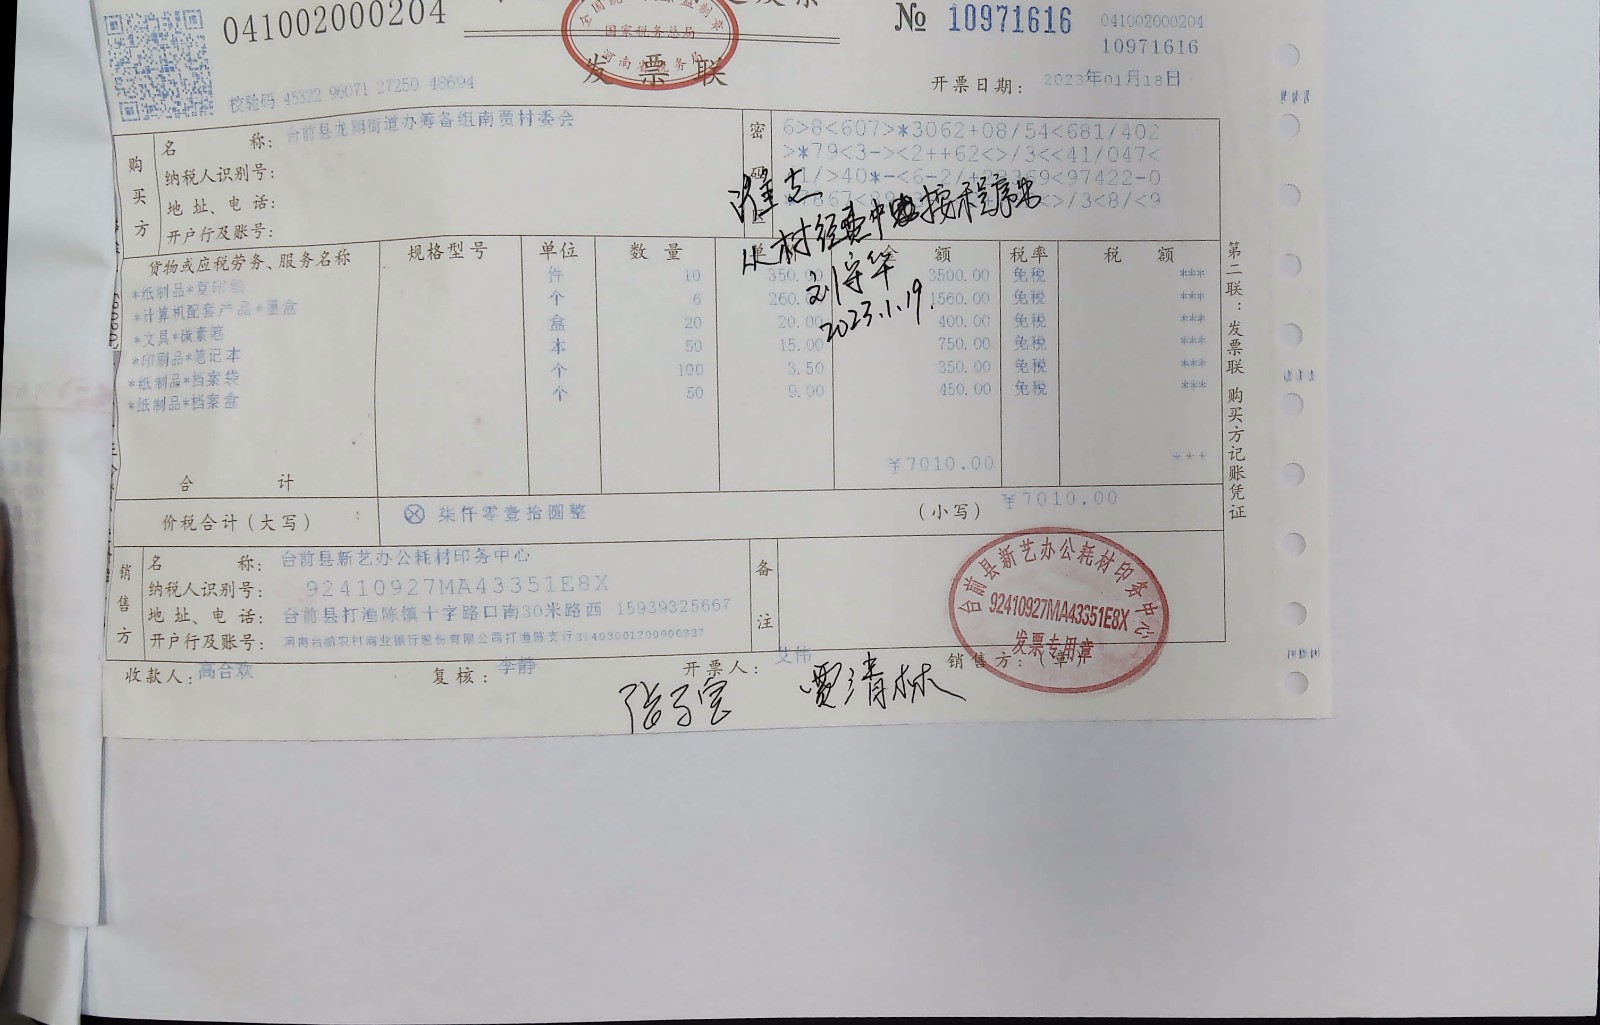 041002000204
发票联
全国统一发票监制章
国家税务总局
河南省税务局
№ 10971616
041002000204
10971616
校验码 45322 96071 27250 48694
开票日期： 2023年01月18日
购买方
名 称： 台前县龙翔街道办筹备组南贾村委会
纳税人识别号：
地 址、电 话：
开户行及账号：
密码
6>8<607>*3062+08/54<681/402
>*79<3-><2++62<>/3<<41/047<
从村经费中 按程序
刘守华
2023.1.19.
货物或应税劳务、服务名称 规格型号 单位 数 量 单 金 额 税率 税 额
*纸制品*复印纸 件 10 350.00 3500.00 免税 ***
*计算机配套产品*墨盒 个 6 260. 1560.00 免税 ***
*文具*碳素笔 盒 20 20.00 400.00 免税 ***
*印刷品*笔记本 本 50 15.00 750.00 免税 ***
*纸制品*档案袋 个 100 3.50 350.00 免税 ***
*纸制品*档案盒 个 50 9.00 450.00 免税 ***
合 计 ¥7010.00 ***
价税合计（大写） ⊗ 柒仟零壹拾圆整 （小写） ¥7010.00
销售方
名 称： 台前县新艺办公耗材印务中心
纳税人识别号： 92410927MA43351E8X
地 址、电 话： 台前县打渔陈镇十字路口南30米路西 15939325667
开户行及账号： 河南台前农村商业银行股份有限公司打渔陈支行
备注
台前县新艺办公耗材印务中心
92410927MA43351E8X
发票专用章
收款人： 高合欢 复核： 李静 开票人： 艾伟 销售方：（章）
贾清林
第二联：发票联 购买方记账凭证